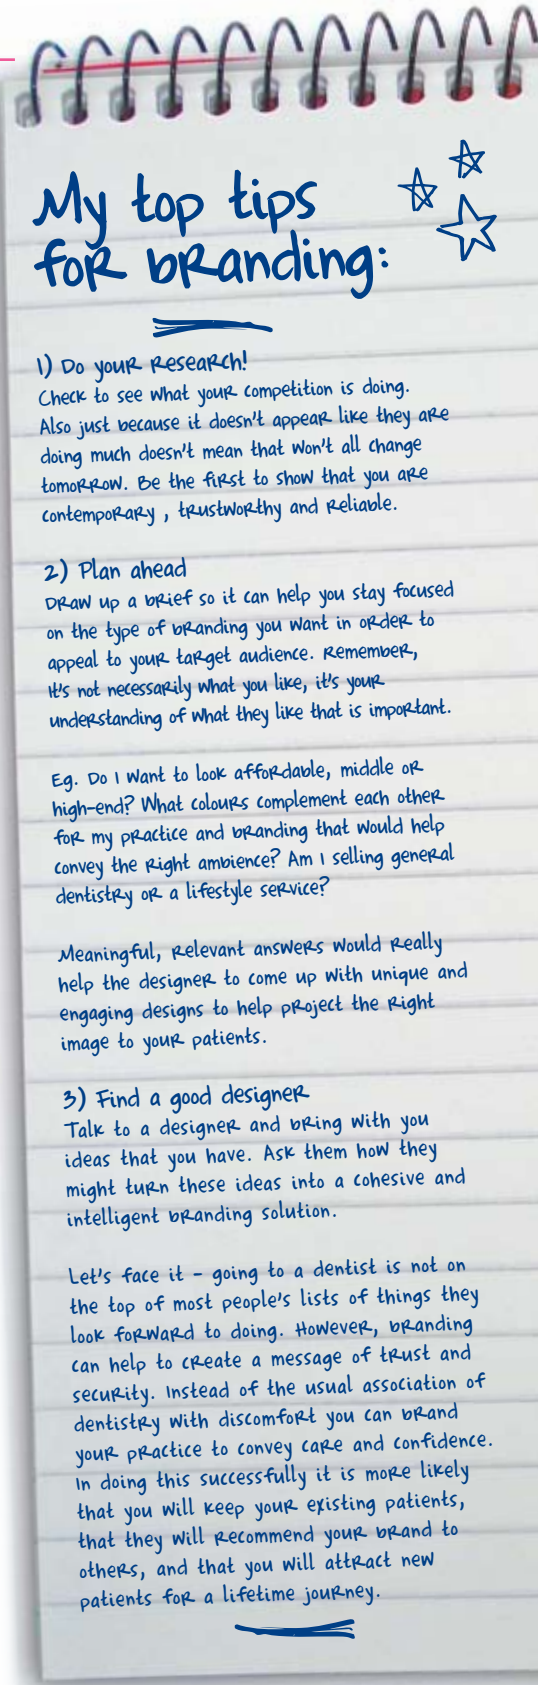 My top tips
for branding:
1) Do your research!
Check to see what your competition is doing.
Also just because it doesn't appear like they are
doing much doesn't mean that won't all change
tomorrow. Be the first to show that you are
contemporary , trustworthy and reliable.
2) Plan ahead
Draw up a brief so it can help you stay focused
on the type of branding you want in order to
appeal to your target audience. Remember,
it's not necessarily what you like, it's your
understanding of what they like that is important.
Eg. Do I want to look affordable, middle or
high-end? What colours complement each other
for my practice and branding that would help
convey the right ambience? Am I selling general
dentistry or a lifestyle service?
Meaningful, relevant answers would really
help the designer to come up with unique and
engaging designs to help project the right
image to your patients.
3) Find a good designer
Talk to a designer and bring with you
ideas that you have. Ask them how they
might turn these ideas into a cohesive and
intelligent branding solution.
Let's face it - going to a dentist is not on
the top of most people's lists of things they
look forward to doing. However, branding
can help to create a message of trust and
security. Instead of the usual association of
dentistry with discomfort you can brand
your practice to convey care and confidence.
In doing this successfully it is more likely
that you will keep your existing patients,
that they will recommend your brand to
others, and that you will attract new
patients for a lifetime journey.